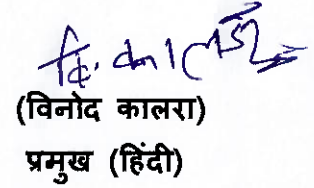 (विनोद कालरा)
प्रमुख (हिंदी)